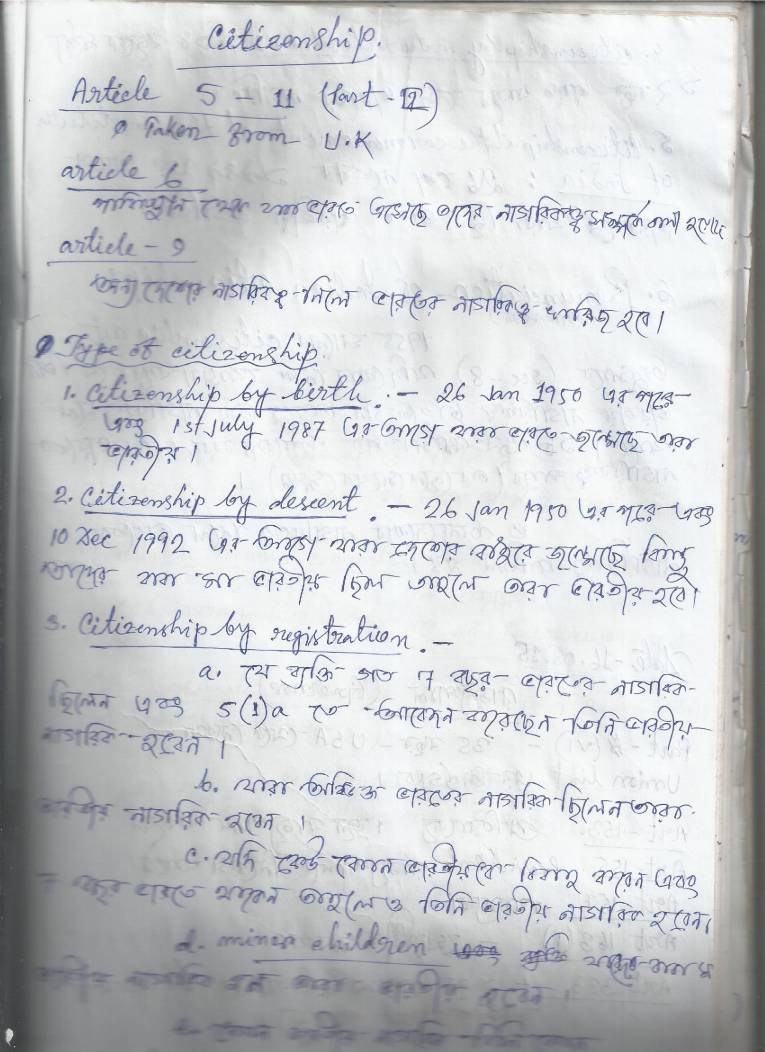 Citizenship.
Article 5 - 11 (Part - II)
Taken from U.K
article 6
পাকিস্তান থেকে যারা ভারতে এসেছে তাদের নাগরিকত্ব সম্পর্কে বলা হয়েছে
article - 9
অন্য দেশের নাগরিকত্ব নিলে ভারতের নাগরিকত্ব খারিজ হবে।
Type of citizenship
1. Citizenship by birth. - 26 Jan 1950 এর পরে
এবং 1st July 1987 এর আগে যারা ভারতে জন্মেছে তারা
ভারতীয়।
2. Citizenship by descent. - 26 Jan 1950 এর পরে এবং
10 Dec 1992 এর আগে যারা দেশের বাইরে জন্মেছে কিন্তু
তাদের বাবা মা ভারতীয় ছিল তাহলে তারা ভারতীয় হবে।
3. Citizenship by registration. -
a. যে ব্যক্তি গত 7 বছর ভারতের নাগরিক
ছিলেন এবং 5(1)a তে আবেদন করেছেন তিনি ভারতীয়
নাগরিক হবেন।
b. যারা অবিভক্ত ভারতের নাগরিক ছিলেন তারা
ভারতীয় নাগরিক হবেন।
c. যদি কেউ কোন ভারতীয়কে বিবাহ করেন এবং
7 বছর ভারতে থাকেন তাহলেও তিনি ভারতীয় নাগরিক হবেন।
d. minor children যাদের বাবা মা
ভারতীয় নাগরিক তারা ভারতীয় হবেন।